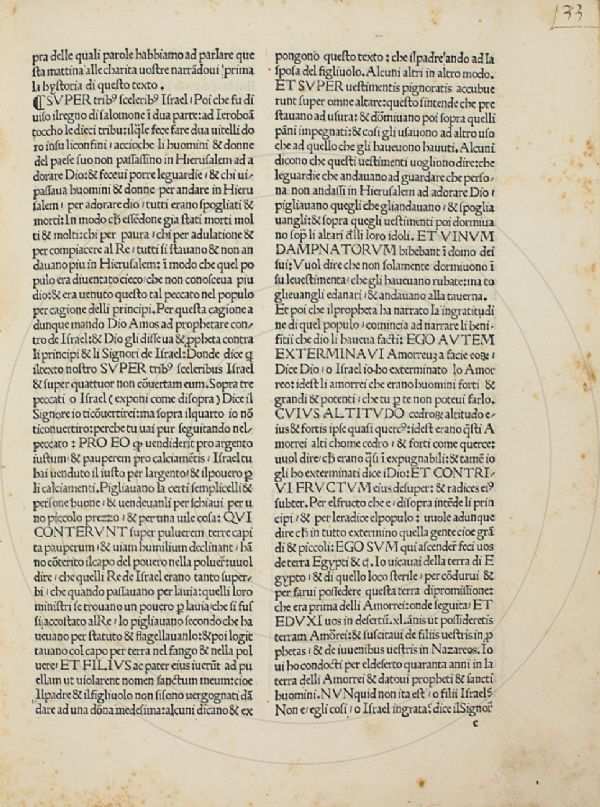 133
pra delle quali parole habbiamo ad parlare que
sta mattina alle charita uostre narrādoui ' prima
la hystoria di questo texto.
¶ SVPER trib⁹ scelerib⁹ Israel / Poi che fu di
uiso il regno di salamone ī dua parte: ad Ieroboā
toccho le dieci tribu: il q̄le fece fare dua uitelli do
ro in su li confini / accioche li huomini & donne
del paese suo non passassino in Hierusalem ad a
dorare Dio: & feceui porre le guardie / & chi ui
passaua huomini & donne per andare in Hieru
salem / per adorare dio / tutti erano spogliati &
morti: In modo ch̄ essēdone gia stati morti mol
ti & molti: chi per paura / chi per adulatione &
per compiacere al Re / tutti si stauano & non an
dauano piu in Hierusalem: ī modo che quel po
pulo era diuentato cieco / che non conosceua piu
dio: & era uenuto questo tal peccato nel populo
per cagione delli principi. Per questa cagione a
dunque mando Dio Amos ad prophetare con/
tro de Israel: & Dio gli disse ua & ꝓpheta contra
li principi & li Signori de Israel: Donde dice q̄
il texto nostro SVPER trib⁹ sceleribus Israel
& super quattuor non cōuertam eum. Sopra tre
peccati o Israel (exponi come disopra) Dice il
Signore io ti cōuertirei: ma sopra il quarto io nō
ti conuertiro: perche tu uai pur seguitando nel
peccato: PRO EO ꝙ uendiderit pro argento
iustum / & pauperem pro calciamētis / Israel tu
hai uenduto il iusto per largento / & il pouero p̱
li calciamenti. Pigliauano la certi semplicelli &
persone buone / & uendeuanli per schiaui per u
no piccolo prezzo / & per una uile cosa: QVI
CONTERVNT super puluerem terre capi
ta pauperum / & uiam humilium declinant / hā
no cōterito il capo del pouero nella poluer: uuol
dire / che quelli Re de Israel erano tanto super/
bi / che quando passauano per la uia: quelli loro
ministri se trouano un pouero p̱ la uia / che si fus
si accostato al Re / lo pigliauano secondo che ha
ueuano per statuto & flagellauanlo: & poi logit
tauano col capo per terra nel fango & nella pol
uere / ET FILIVS ac pater eius iuerūt ad pu
ellam ut uiolarent nomen sanctum meum: cioe
Il padre & il figliuolo non si sono uergognati dā
dare ad una dōna medesima: alcuni dicano & ex
pongono questo texto: che il padre ando ad la
sposa del figliuolo. Alcuni altri in altro modo.
ET SVPER uestimentis pignoratis accubue
runt super omne altare: questo sintende che pre
stauano ad usura: & dormiuano poi sopra quelli
pāni impegnati: & cosi gli usauono ad altro uso
che ad quello che gli haueuono hauuti. Alcuni
dicono che questi uestimenti uogliono dire: che
le guardie che andauano ad guardare che perso/
na non andassi in Hierusalem ad adorare Dio /
pigliauano quegli che gliandauano / & spoglia
uangli: & sopra quegli uestimenti poi dormiua
no sop̱ li altari delli loro idoli. ET VINVM
DAMPNATORVM bibebant ī domo dei
sui: Vuol dire che non solamente dormiuono ī
su le uestimenta / che gli haueuano rubate: ma to
glieuangli e danari / & andauano alla tauerna.
Et poi che il propheta ha narrato la ingratitudi
ne di quel populo / comincia ad narrare li beni/
fitii che dio li haueua facti: EGO AVTEM
EXTERMINAVI Amorreuȝ a facie eoꝝ /
Dice Dio / o Israel io ho exterminato lo Amor
reo: idest li amorrei che erano huomini forti &
grandi & potenti / che tu p̱ te non poteui farlo.
CVIVS ALTITVDO cedroꝝ altitudo e/
ius & fortis ipse quasi querc⁹: idest erano q̄sti A
morrei alti chome cedro / & forti come querce:
uuol dire / ch̄ erano q̄si ī expugnabili: & tamē io
gli ho exterminati dice idio: ET CONTRI/
VI FRVCTVM eius desuper: & radices ei⁹
subter. Per el fructo che e / disopra intēde li prin
cipi / & per le radice el populo: uuole adunque
dire ch̄ in tutto extermino quella gente cioe grā
di & piccoli: EGO SVM qui ascender̄ feci uos
de terra Egypti & c̄. Io ui cauai della terra di E
gypto / & di quello loco sterile / per cōdurui &
per farui possedere questa terra di promissione:
che era prima delli Amorrei: onde seguita / ET
EDVXI uos in desertū .xl. ānis ut possideretis
terram Amorrei: & suscitaui de filiis uestris in ꝓ
phetas / & de iuuenibus uestris in Nazareos. Io
ui ho condocti per el deserto quaranta anni in la
terra delli Amorrei & datoui propheti & sancti
huomini. NVNquid non ita est / o filii Israel?
Non e / egli cosi / o Israel ingrata? dice il Signor̄
c